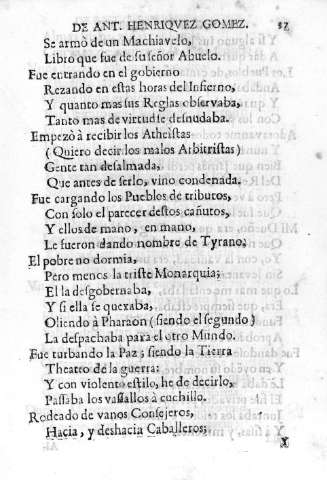 DE ANT. HENRIQVEZ GOMEZ. 37
Se armò de un Machiavelo,
Libro que fue de su señor Abuelo.
Fue entrando en el gobierno
Rezando en estas horas del Infierno,
Y quanto mas sus Reglas observaba,
Tanto mas de virtud se desnudaba.
Empezò à recibir los Atheistas
(Quiero decir los malos Arbitristas)
Gente tan desalmada,
Que antes de serlo, vino condenada.
Fue cargando los Pueblos de tributos,
Con solo el parecer destos cañutos,
Y ellos de mano, en mano,
Le fueron dando nombre de Tyrano;
El pobre no dormia,
Pero menos la triste Monarquia;
El la desgobernaba,
Y si ella se quexaba,
Oliendo à Pharaon (siendo el segundo)
La despachaba para el otro Mundo.
Fue turbando la Paz; siendo la Tierra
Theatro de la guerra:
Y con violento estilo, he de decirlo,
Passaba los vassallos à cuchillo.
Rodeado de vanos Consejeros,
Hacia, y deshacia Caballeros;